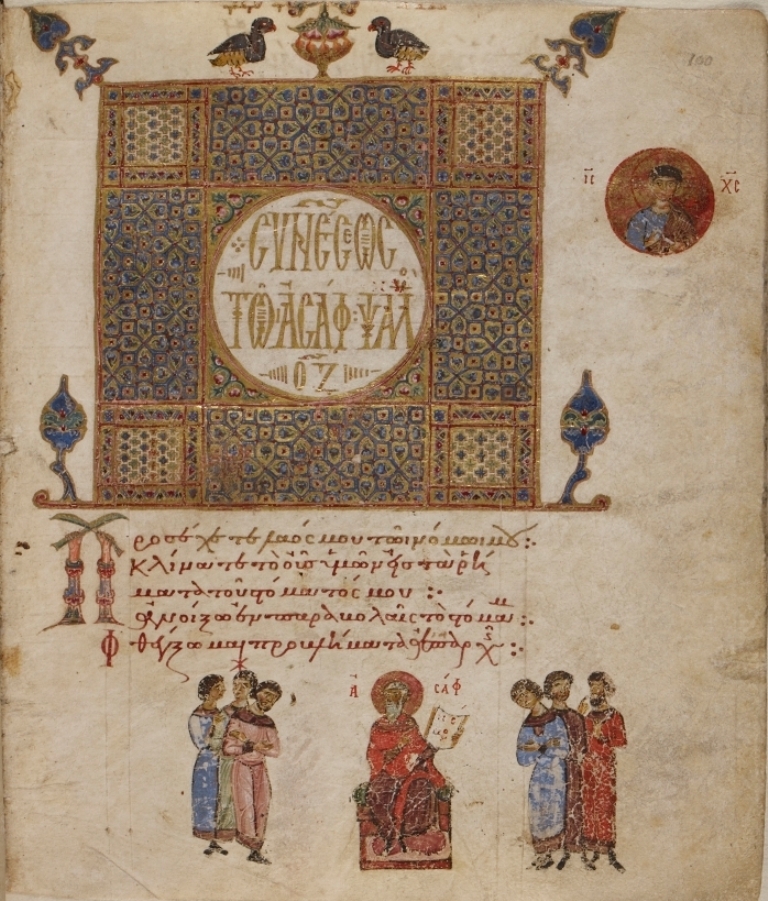 100
ΙC ΧC
CΥΝΕCΕΩC
ΤΩ ΑCΑΦ ΨΑΛ
ΟΖ
Προσέχετε λαός μου τῶ νόμω μου:
Κλίνατε τὸ οὖς ὑμῶν εἰς τὰ ῥή
ματα τοῦ στόματός μου:
Ἀνοίξω ἐν παραβολαῖς τὸ στόμα μ:
Φθέγξωμαι προβλήματα ἀπαρχ:
Α CΑΦ